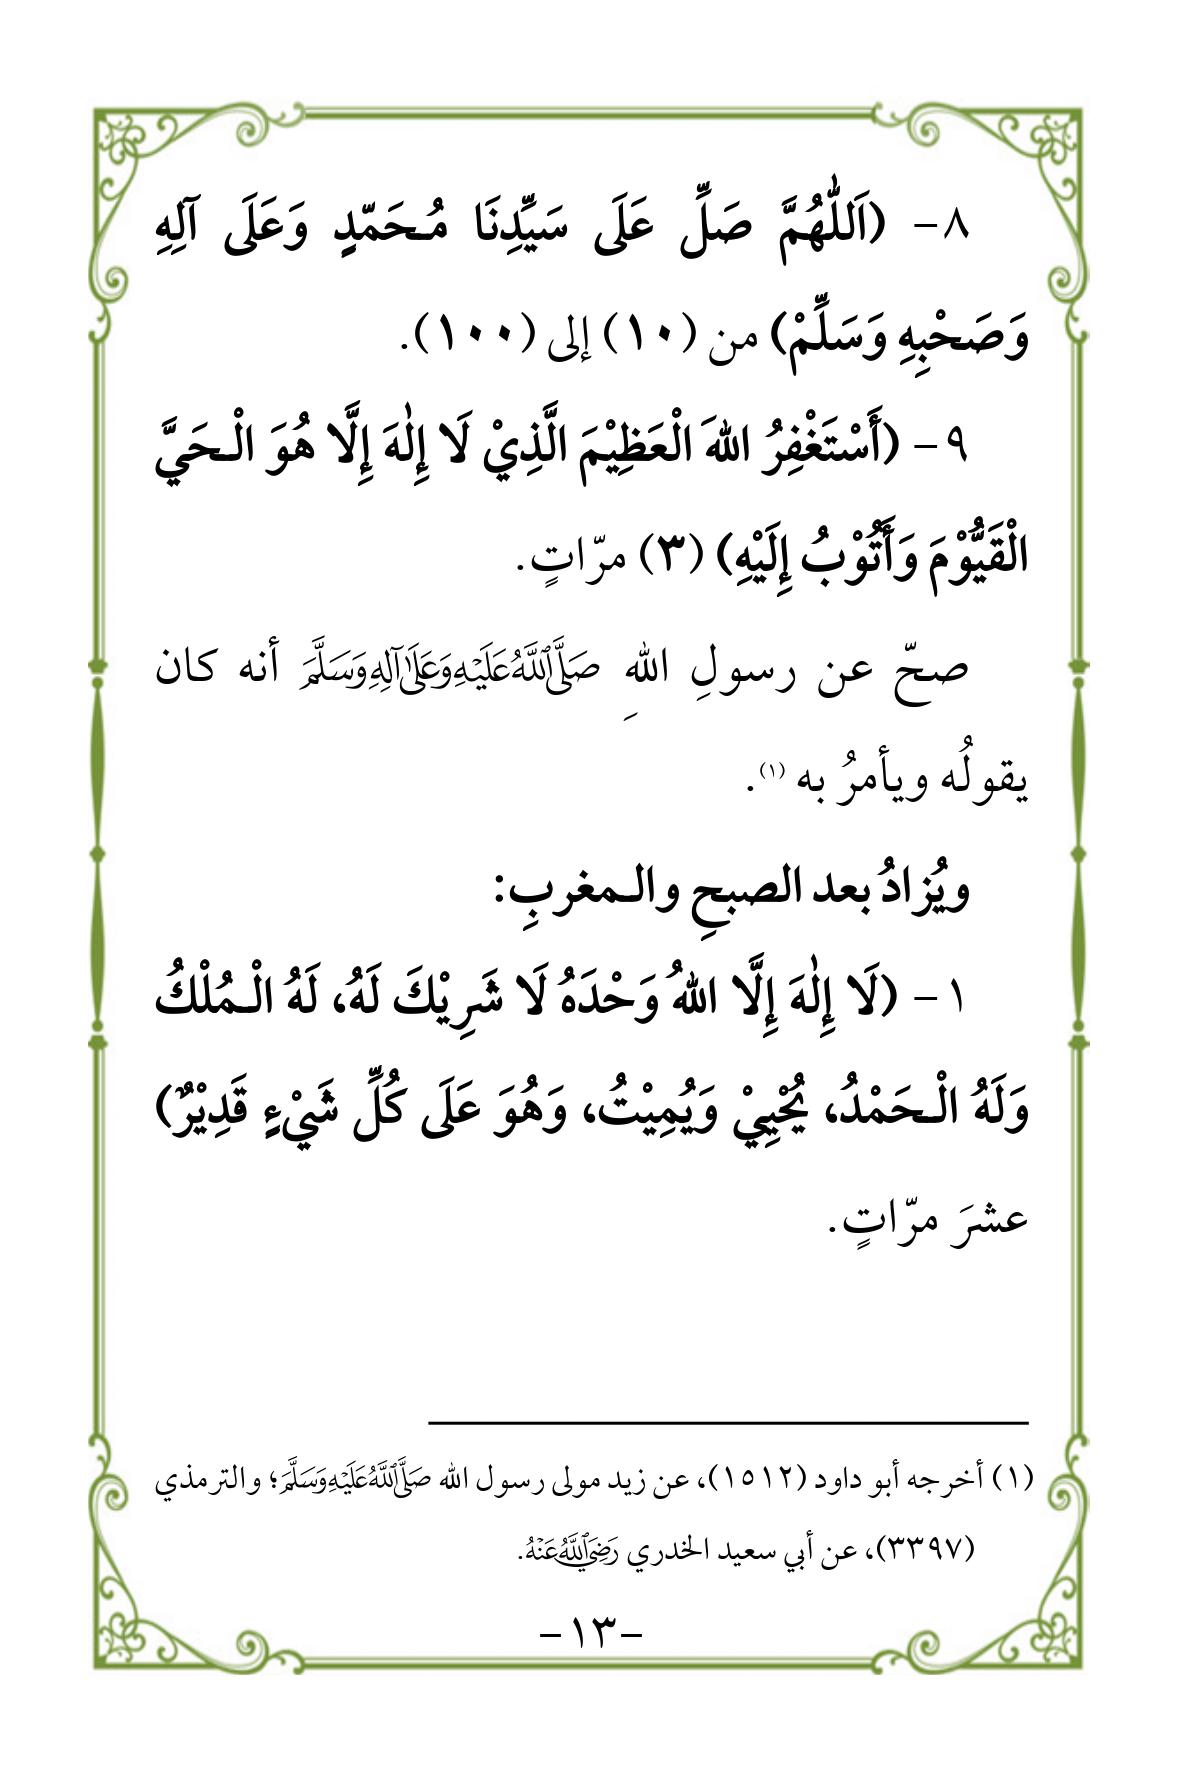 ٨- (اَللّٰهُمَّ صَلِّ عَلَى سَيِّدِنَا مُحَمَّدٍ وَعَلَى آلِهِ
وَصَحْبِهِ وَسَلِّمْ) من (١٠) إلى (١٠٠).
٩- (أَسْتَغْفِرُ اللهَ الْعَظِيْمَ الَّذِيْ لَا إِلٰهَ إِلَّا هُوَ الْـحَيَّ
الْقَيُّوْمَ وَأَتُوْبُ إِلَيْهِ) (٣) مرّاتٍ.
صحّ عن رسولِ اللهِ صَلَّى اللَّهُ عَلَيْهِ وَعَلَى آلِهِ وَسَلَّمَ أنه كان
يقولُه ويأمرُ به (١).
ويُزادُ بعد الصبحِ والـمغربِ:
١- (لَا إِلٰهَ إِلَّا اللهُ وَحْدَهُ لَا شَرِيْكَ لَهُ، لَهُ الْـمُلْكُ
وَلَهُ الْـحَمْدُ، يُحْيِيْ وَيُمِيْتُ، وَهُوَ عَلَى كُلِّ شَيْءٍ قَدِيْرٌ)
عشرَ مرّاتٍ.
(١) أخرجه أبو داود (١٥١٢)، عن زيد مولى رسول الله صَلَّى اللَّهُ عَلَيْهِ وَسَلَّمَ؛ والترمذي
(٣٣٩٧)، عن أبي سعيد الخدري رَضِيَ اللَّهُ عَنْهُ.
-١٣-